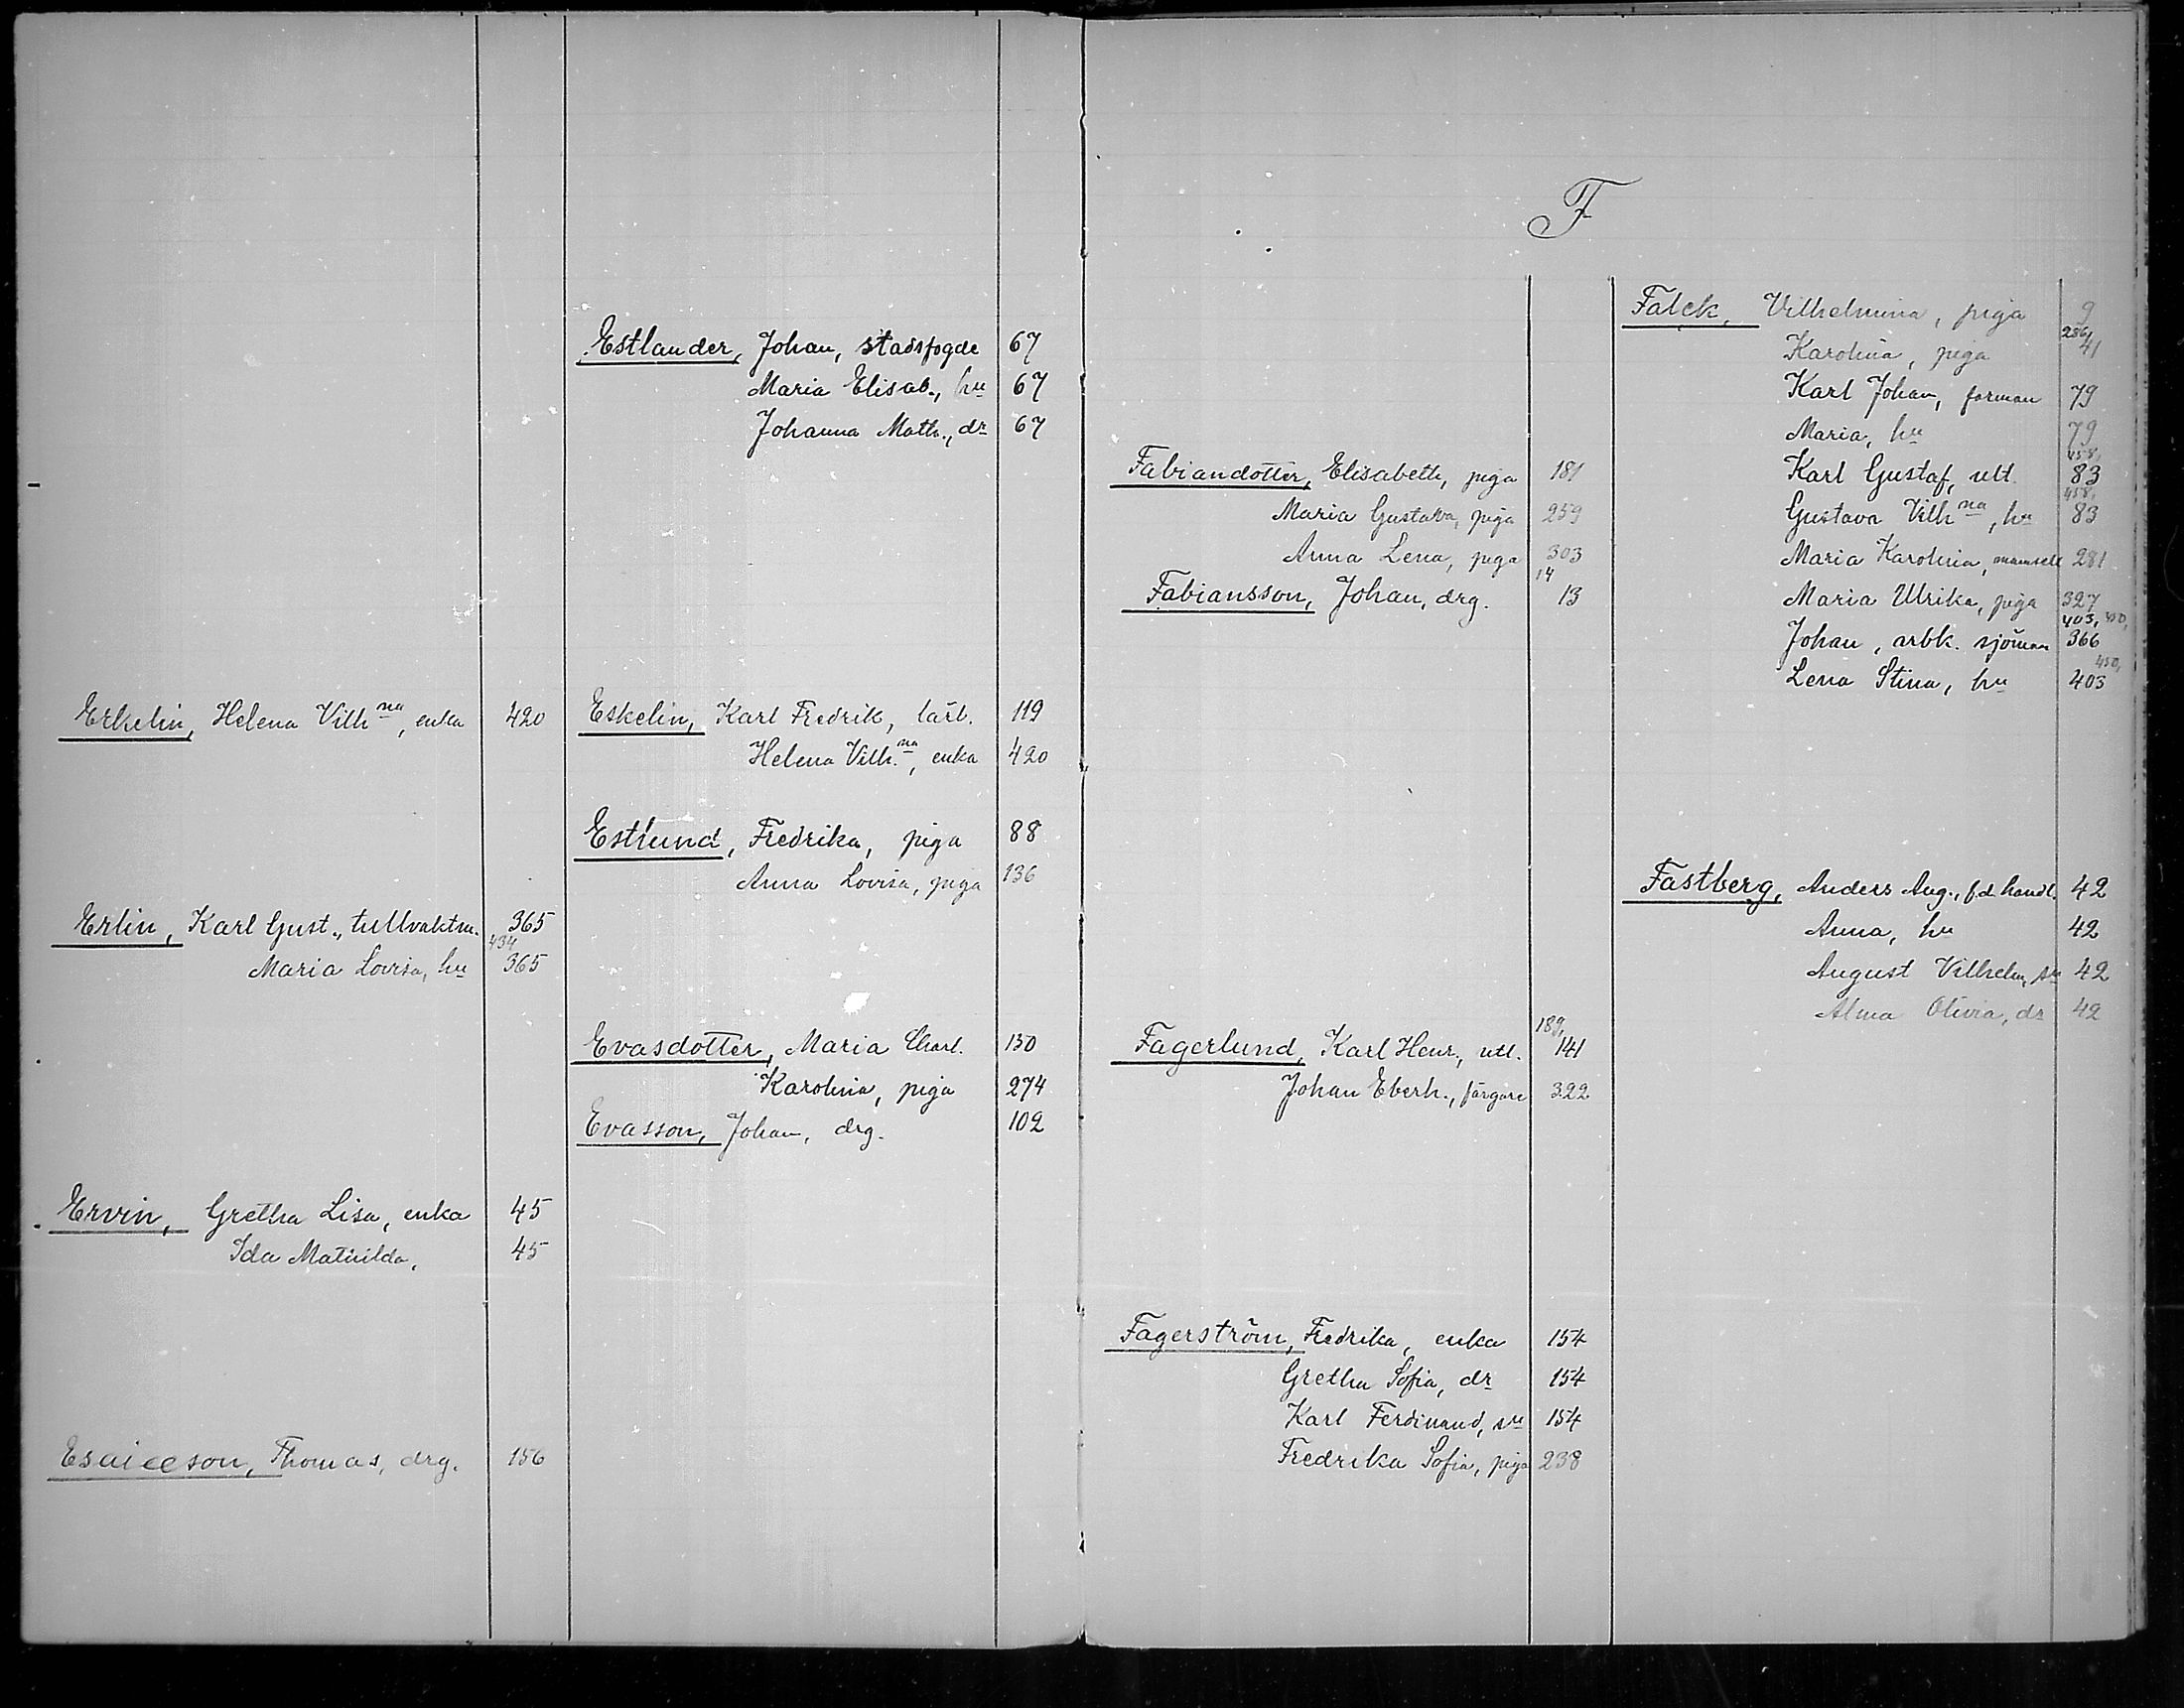 Erkelin, Helena Vilh na, enka 420
Erlin, Karl Gust., tullvaktm. 365
434
Maria Lovisa, hu 365
Ervin, Gretha Lisa, enka 45
Ida Mathilda, 45
Esaiceson, Thomas, drg. 156
Estlander, Johan, stadsfogde 67
Maria Elisab., hu 67
Johanna Math., dr 67
Eskelin, Karl Fredrik, lärl. 119
Helena Vilh. na, enka 420
Estlund, Fredrika, piga 88
Anna Lovisa, piga 136
Evasdotter, Maria Charl. 130
Karolina, piga 274
Evasson, Johan, drg. 102
F
Fabiandotter, Elisabeth, piga 181
Maria Gustava, piga 259
Anna Lena, piga 303
14
Fabiansson, Johan, drg. 13
189,
Fagerlund, Karl Henr., utl. 141
Johan Eberh., färgare 322
Fagerström, Fredrika, enka 154
Gretha Sofia, dr 154
Karl Ferdinand, sn 154
Fredrika Sofia, piga 238
Falck, Vilhelmina, piga 9
286,
Karolina, piga 41
Karl Johan, forman 79
Maria, hu 79
458,
Karl Gustaf, utl. 83
458,
Gustava Vilh na, hu 83
Maria Karolina, mamsell 281
Maria Ulrika, piga 327
403, 450,
Johan, arbk. sjöman 366
450,
Lena Stina, hu 403
Fastberg, Anders Aug., f.d. handl. 42
Anna, hu 42
August Vilhelm, sn 42
Alma Olivia, dr 42